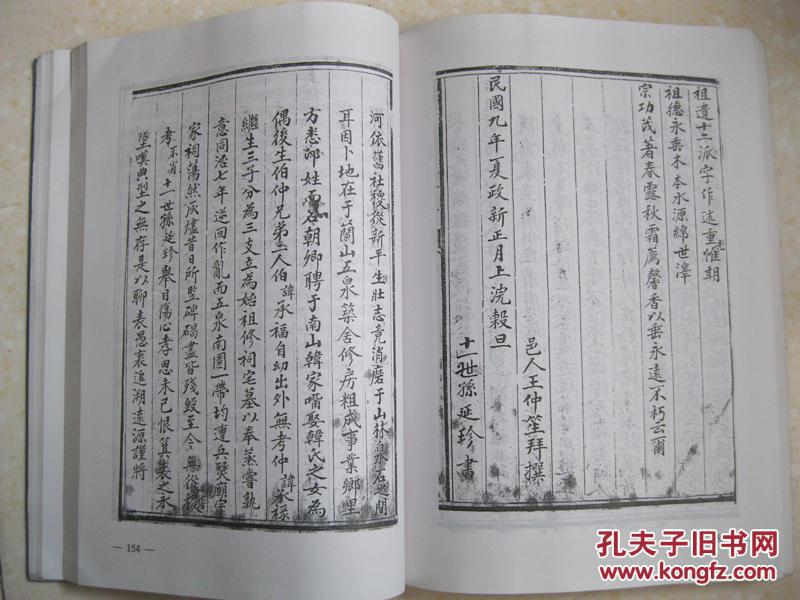 祖遺十二派字作述重惟光期
祖德永垂木本水源綿世澤
宗功茂著春露秋霜薦馨香以垂永遠不朽云爾
民國九年夏政新正月上浣穀旦
邑人王仲笙拜撰
十一世孫延珍書
河依舊社稷從新平生壯志竟消磨于山林泉石之間
耳因卜地在于蘭山五泉築舍修房粗成事業鄉里
方悉邵姓而名朝卿聘于南山韓家嘴娶韓氏之女為
偶後生伯仲兄弟二人伯諱承福自幼出外無考仲諱承祿
繼生三子分為三支立為始祖修祠宅墓以奉蒸嘗孰
意同治七年逆回作亂而五泉南園一帶均遭兵燹廟宇
家祠蕩然灰燼昔日所監碑碣盡皆殘毀至今無從稽
考不肖十一世孫延珍舉目傷心孝思未已恨箕裘之永
墜嘆典型之無存是以聊表愚衷追溯遠源謹將
— 154 —
孔夫子旧书网
www.kongfz.com